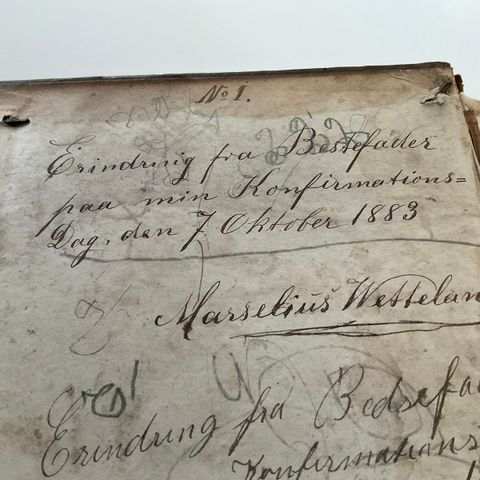 No 1.
Erindring fra Bestefader
paa min Konfirmations=
Dag, den 7 Oktober 1883
Marselius Wettelan
Erindring fra Bedsefa
Konfirmations